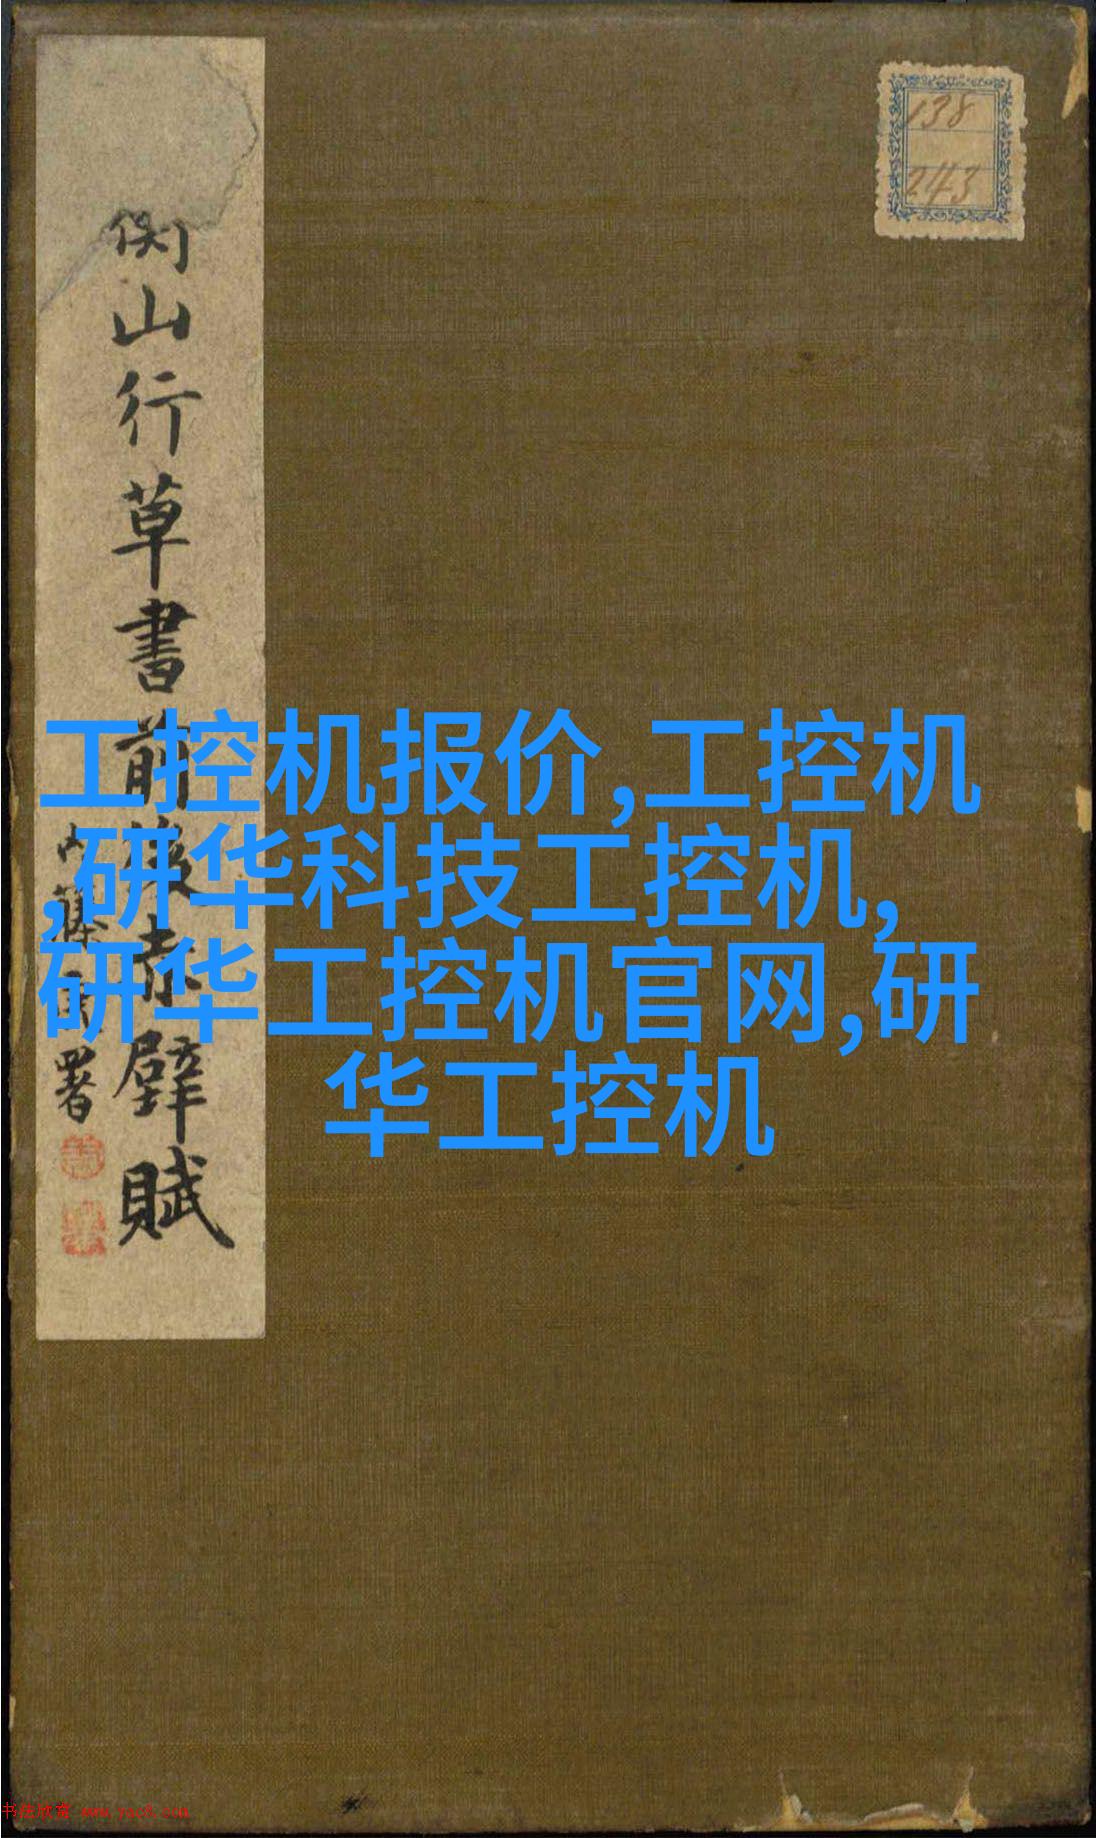 138
243
衡山行草書前後赤壁賦
内藤虎署
工控机报价,工控机
,研华科技工控机,
研华工控机官网,研
华工控机
书法欣赏 www.yac8.com